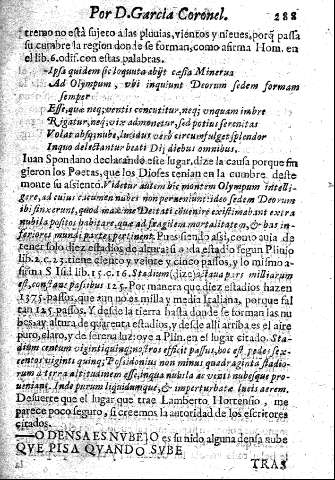 Por D. Garcia Coronel. 288
tremo no està sujeto a las pluuias, vientos y nieues, porq̃ passa
su cumbre la region donde se forman, como afirma Hom. en
el lib. 6. odis. con estas palabras.
Ipsa quidem sic loquuta abijt cæsia Minerua
Ad Olympum, vbi inquiunt Deorum sedem formam
semper
Esse, quæ neq; ventis concutitur, neq; vnquam imbre
Rigatur, neq; nix admouetur, sed potius serenitas
Volat absq; nube, lucidus verò circumfulget splendor
In quo delectantur beati Dij diebus omnibus.
Iuan Spondano declarando este lugar, dize la causa porque fin
gieron los Poetas, que los Dioses tenian en la cumbre deste
monte su assiento. Videtur autem hic montem Olympum intelli-
gere, ad cuius cacumen nubes non perueniunt: ideo sedem Deorum
ibi finxerunt, quod maxime Deitati cõuenire existimabant extra
nubila positos habitare, quæ ad fragilem mortalitatem, & has in-
feriores mundi partes pertinent. Pues siendo assi, como auia de
tener solo diez estadios de altura? a cada estadio segun Plinio
lib. 2. c. 23. tiene ciento y veinte y cinco passos, y lo mismo a-
firma S. Isid. lib. 15. c. 16. Stadium (dize) octaua pars milliarum
est, constans passibus 125. Por manera que diez estadios hazen
passos, que aun no es milla y media Italiana, porque fal
tan 125. passos. Y desde la tierra hasta donde se forman las nu
bes, ay altura de quarenta estadios, y desde alli arriba es el aire
puro, claro, y de serena luz: oye a Plin. en el lugar citado. Sta-
dium centum viginti quinq; nostros efficit passus, hoc est pedes sex-
centos viginti quinq; Possidonius non minus quadraginta stadio-
rum à terra altitudinem esse, in qua nubila ac venti nubesque pro-
ueniant. Inde purum liquidumque, & imperturbatæ lucis aerem.
Desuerte que el lugar que trae Lamberto Hortensio, me
parece poco seguro, si creemos la autoridad de los escritores
citados.
O DENSA ES NVBE JO es su nido alguna densa nube
QVE PISA QVANDO SVBE
TRAS